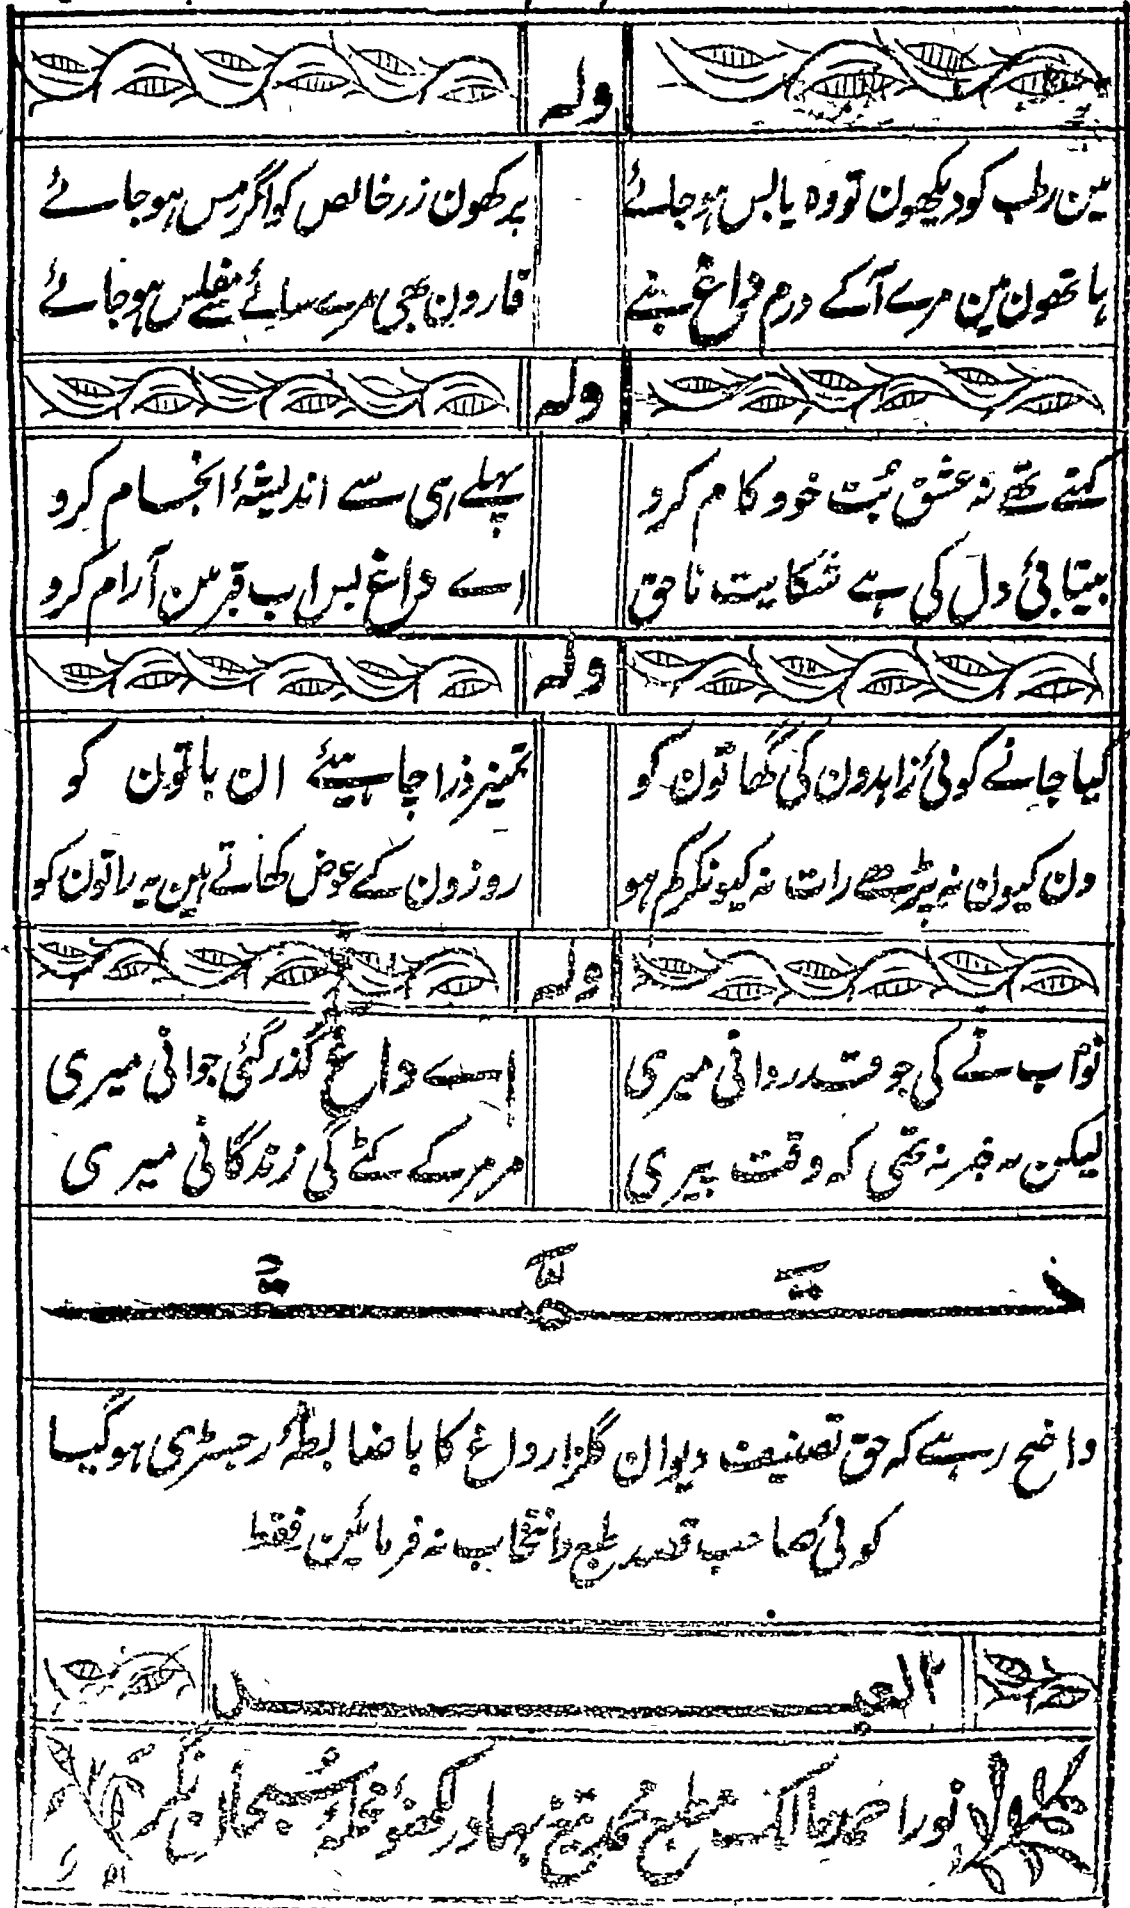 ولہ
مین رطب کو دیکھون تو وہ یابس ہو جائے
پرکھون زر خالص کو اگر مس ہو جائے
ہاتھون مین مرے آکے درم داغ بنے
قارون بھی مرے سائے سے مفلس ہو جائے
ولہ
کہتے تھے نہ عشق بُت خود کام کرو
پہلے ہی سے اندیشۂ انجام کرو
بیتابیٔ دل کی ہے شکایت ناحق
اے داغ بس اب قبر مین آرام کرو
ولہ
کیا جانے کوئی زاہدون کی گھاتون کو
تمیز ذرا چاہیئے ان باتون کو
دن کیون نہ بڑھے رات نہ کیونکر کم ہو
روزون کے عوض کھاتے ہین یہ راتون کو
ولہ
نواب نے کی جو قدردانی میری
اے داغ گذر گئی جوانی میری
لیکن یہ خبر نہ تھی کہ وقت پیری
مر مر کے کٹے گی زندگانی میری
واضح رہے کہ حق تصنیف دیوان گلزار داغ کا باضابطہ رجسٹری ہوگیا
کوئی صاحب قصد طبع و انتخاب نہ فرمائین فقط
العبد
نور احمد مالک مطبع محمد تیغ بہادر لکھنؤ محلہ